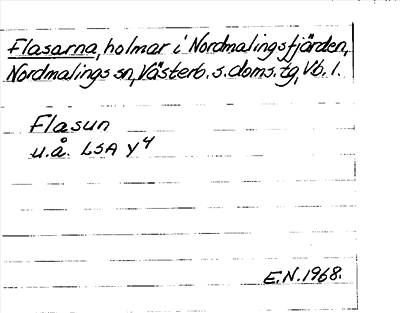 Flasarna, holmar i Nordmalingsfjärden,
Nordmalings sn, Västerb. s. doms. tg, Vb. l.
Flasun
u.å. LSA Y4
E.N. 1968.